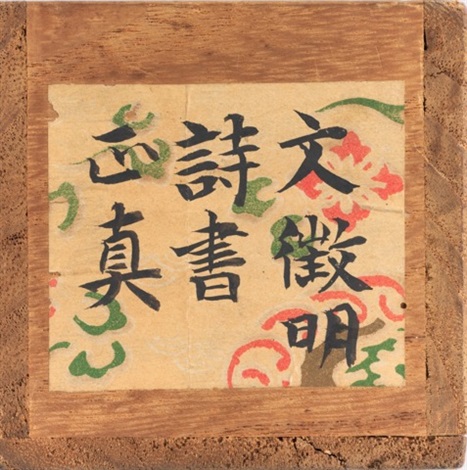 文徵明
詩書
正真